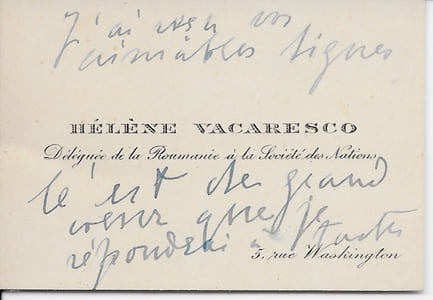 J'ai reçu vos
aimables lignes
HÉLÈNE VACARESCO
Déléguée de la Roumanie à la Société des Nations
C'est de grand
coeur que je
répondrai à
5, rue Washington